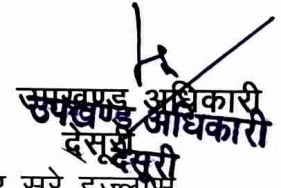 उपखण्ड अधिकारी
उपखण्ड अधिकारी
देसूरी
देसूरी